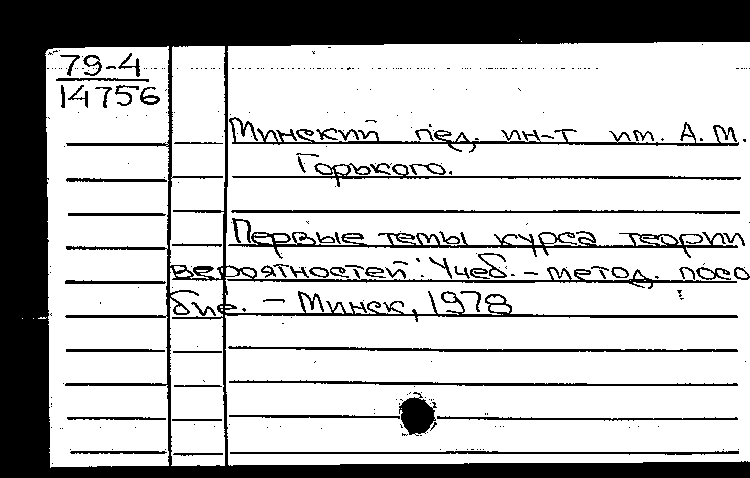 79-4
14756
Минский пед. ин-т им. А. М.
Горького.
Первые темы курса теории
вероятностей : Учеб. - метод. посо
бие. - Минск, 1978